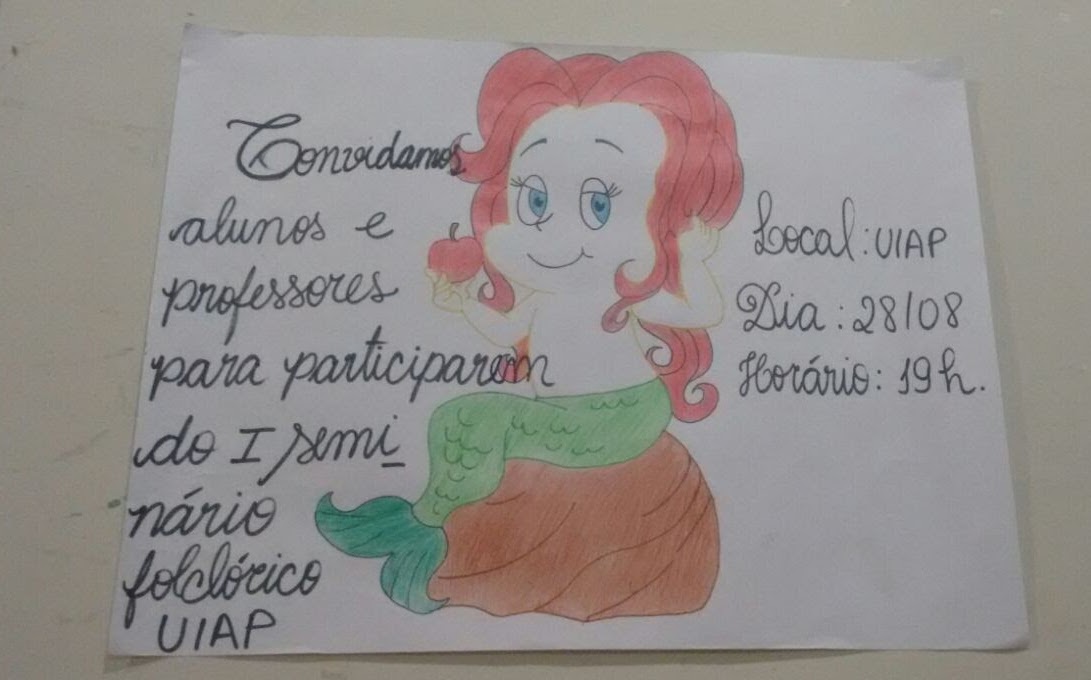 Convidamos
alunos e
professores
para participarem
do I semi
nário
folclórico
UIAP
Local: UIAP
Dia: 28/08
Horário: 19 h.